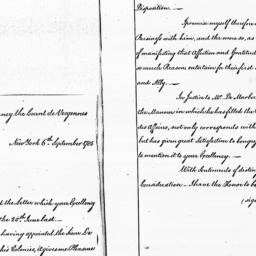 ncy the Count de Vergennes
New York 6th September 1785
d the Letter which your Excellency
the 25th June last.
having appointed the Sieur De
his Colonies, it gives me Pleasure
Disposition.
I promise myself therefore
Business with him, and the more so, as
of manifesting that Affection and Gratitude
so much Reason entertain for their first
and Ally.
In Justice to Mr. De Marbois
the Manner in which he has filled the
des Affaires, not only corresponds with
but has given great Satisfaction to Congress
to mention it to your Excellency.
With Sentiments of disting
Consideration I have the Honor to be
(sign